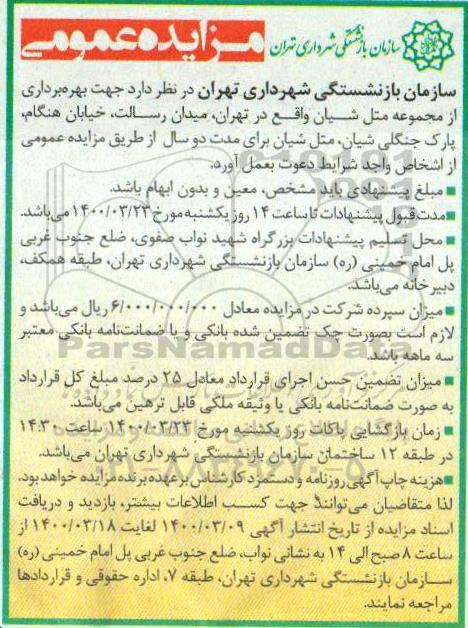 سازمان بازنشستگی شهرداری تهران
مزایده عمومی
سازمان بازنشستگی شهرداری تهران در نظر دارد جهت بهره‌برداری
از مجموعه متل شیان واقع در تهران، میدان رسالت، خیابان هنگام،
پارک جنگلی شیان، متل شیان برای مدت دو سال از طریق مزایده عمومی
از اشخاص واجد شرایط دعوت بعمل آورد.
▪ مبلغ پیشنهادی باید مشخص، معین و بدون ابهام باشد.
▪ مدت قبول پیشنهادات تا ساعت ۱۴ روز یکشنبه مورخ ۱۴۰۰/۰۳/۲۳ می‌باشد.
▪ محل تسلیم پیشنهادات بزرگراه شهید نواب صفوی، ضلع جنوب غربی
پل امام خمینی (ره) سازمان بازنشستگی شهرداری تهران، طبقه همکف،
دبیرخانه می‌باشد.
▪ میزان سپرده شرکت در مزایده معادل ۶/۰۰۰/۰۰۰/۰۰۰ ریال می‌باشد و
لازم است بصورت چک تضمین شده بانکی و یا ضمانت‌نامه بانکی معتبر
سه ماهه باشد.
ParsNamadData
▪ میزان تضمین حسن اجرای قرارداد معادل ۲۵ درصد مبلغ کل قرارداد
به صورت ضمانت‌نامه بانکی یا وثیقه ملکی قابل ترهین می‌باشد.
▪ زمان بازگشایی پاکات روز یکشنبه مورخ ۱۴۰۰/۰۳/۲۳ ساعت ۱۴:۳۰
در طبقه ۱۲ ساختمان سازمان بازنشستگی شهرداری تهران می‌باشد.
▪ هزینه چاپ آگهی روزنامه و دستمزد کارشناس برعهده برنده مزایده خواهد بود.
لذا متقاضیان می‌توانند جهت کسب اطلاعات بیشتر، بازدید و دریافت
اسناد مزایده از تاریخ انتشار آگهی ۱۴۰۰/۰۳/۰۹ لغایت ۱۴۰۰/۰۳/۱۸ از
ساعت ۸ صبح الی ۱۴ به نشانی نواب، ضلع جنوب غربی پل امام خمینی (ره)
سازمان بازنشستگی شهرداری تهران، طبقه ۷، اداره حقوقی و قراردادها
مراجعه نمایند.